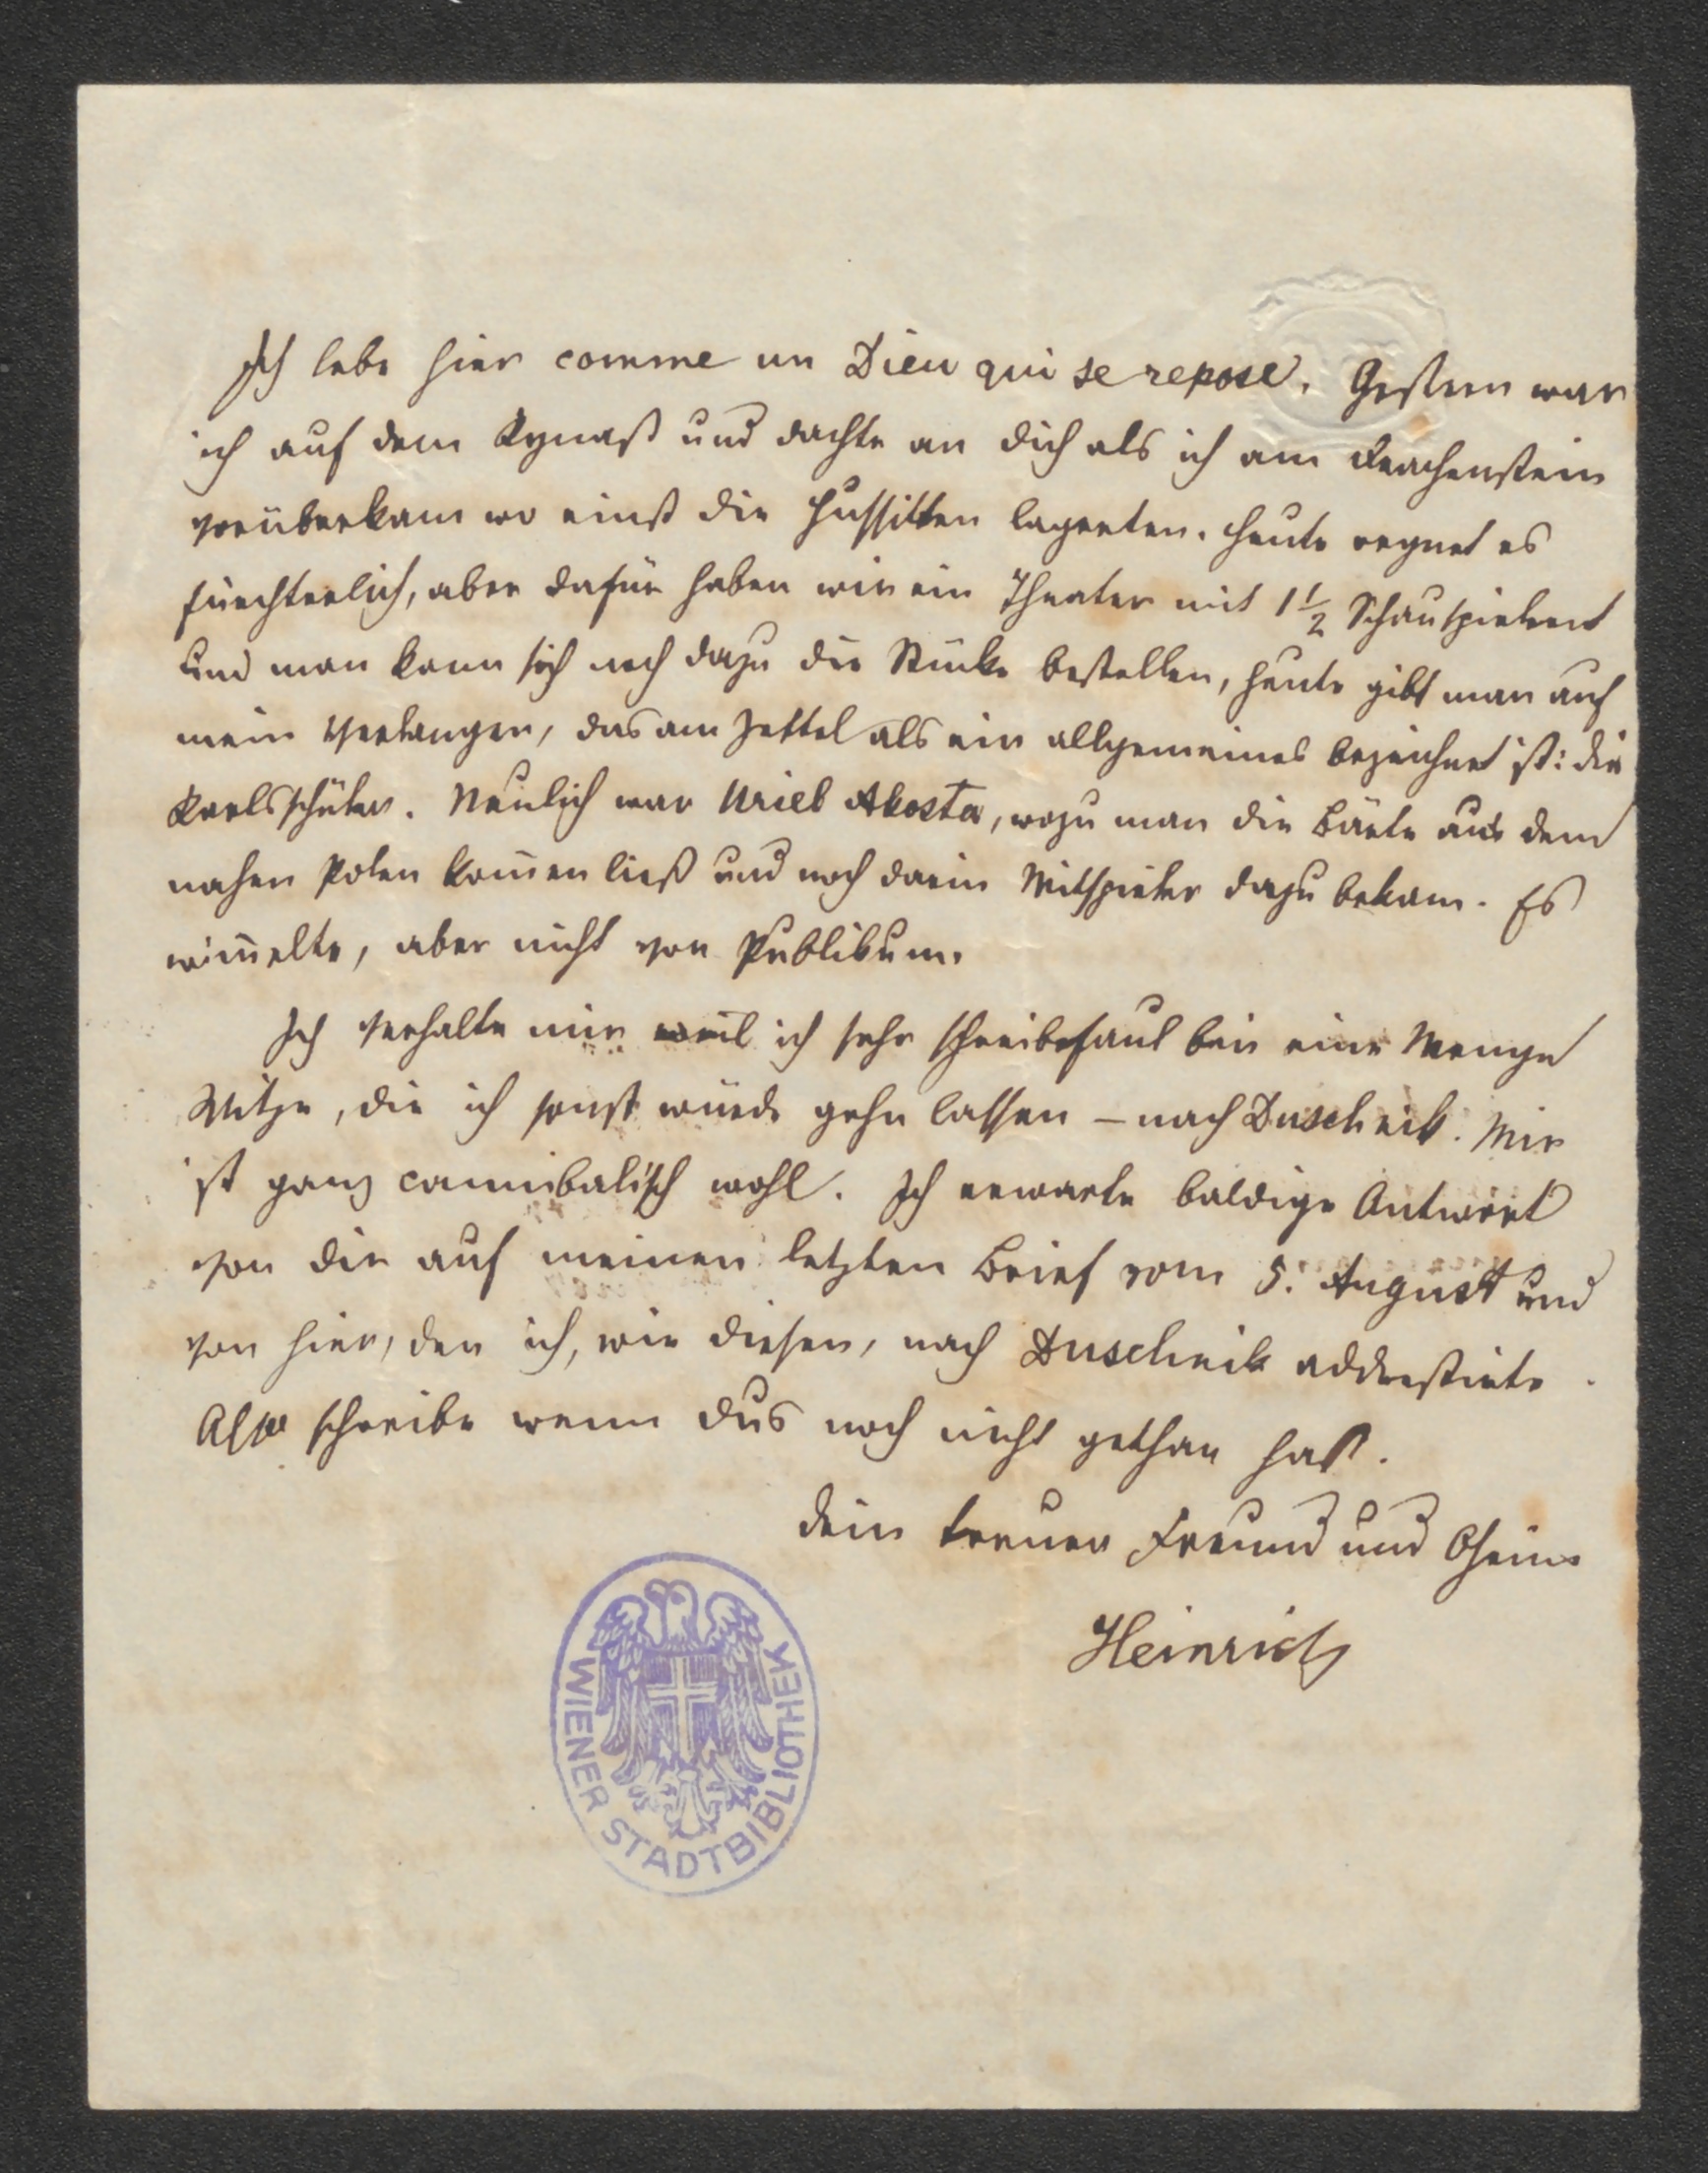 Ich lebe hier comme un Dieu qui se repose. Gestern war
ich auf dem Kynast und dachte an dich als ich am Drachenstein
vorüberkam wo einst die Hussitten lagerten. Heute regnet es
fürchterlich, aber dafür haben wir ein Theater mit 1 1/2 Schauspielern
und man kann sich noch dazu die Stücke bestellen, heute gibt man auf
mein Verlangen, das am Zettel als ein allgemeines bezeichnet ist: die
Karlsschüler. Neulich war Uriel Akosta, wozu man die Bärte aus dem
nahen Polen kom̅en ließ und noch darin Mitspieler dazu bekam. Es
wim̅elte, aber nicht von Publikum.
Ich verhalte mir weil ich sehr schreibefaul bin eine Menge
Witze, die ich sonst würde gehn lassen – nach Duschnik. Mir
ist ganz cannibalisch wohl. Ich erwarte baldige Antwort
von dir auf meinen letzten Brief vom 5. August und
von hier, den ich, wie diesen, nach Duschnik addressirte.
Also schreibe wenn dus noch nicht gethan hast.
Dein treuer Freund und Oheim
Heinrich
WIENER STADTBIBLIOTHEK